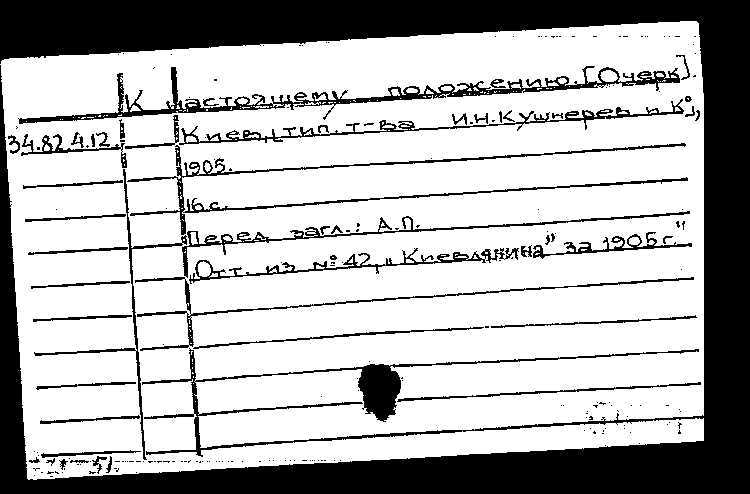 К настоящему положению. [Очерк].
34.82.4.12. Киев, [тип. т-ва И.Н.Кушнерев и К°],
1905.
16 с.
Перед загл.: А.П.
„Отт. из № 42 „Киевлянина” за 1905 г.”
51.